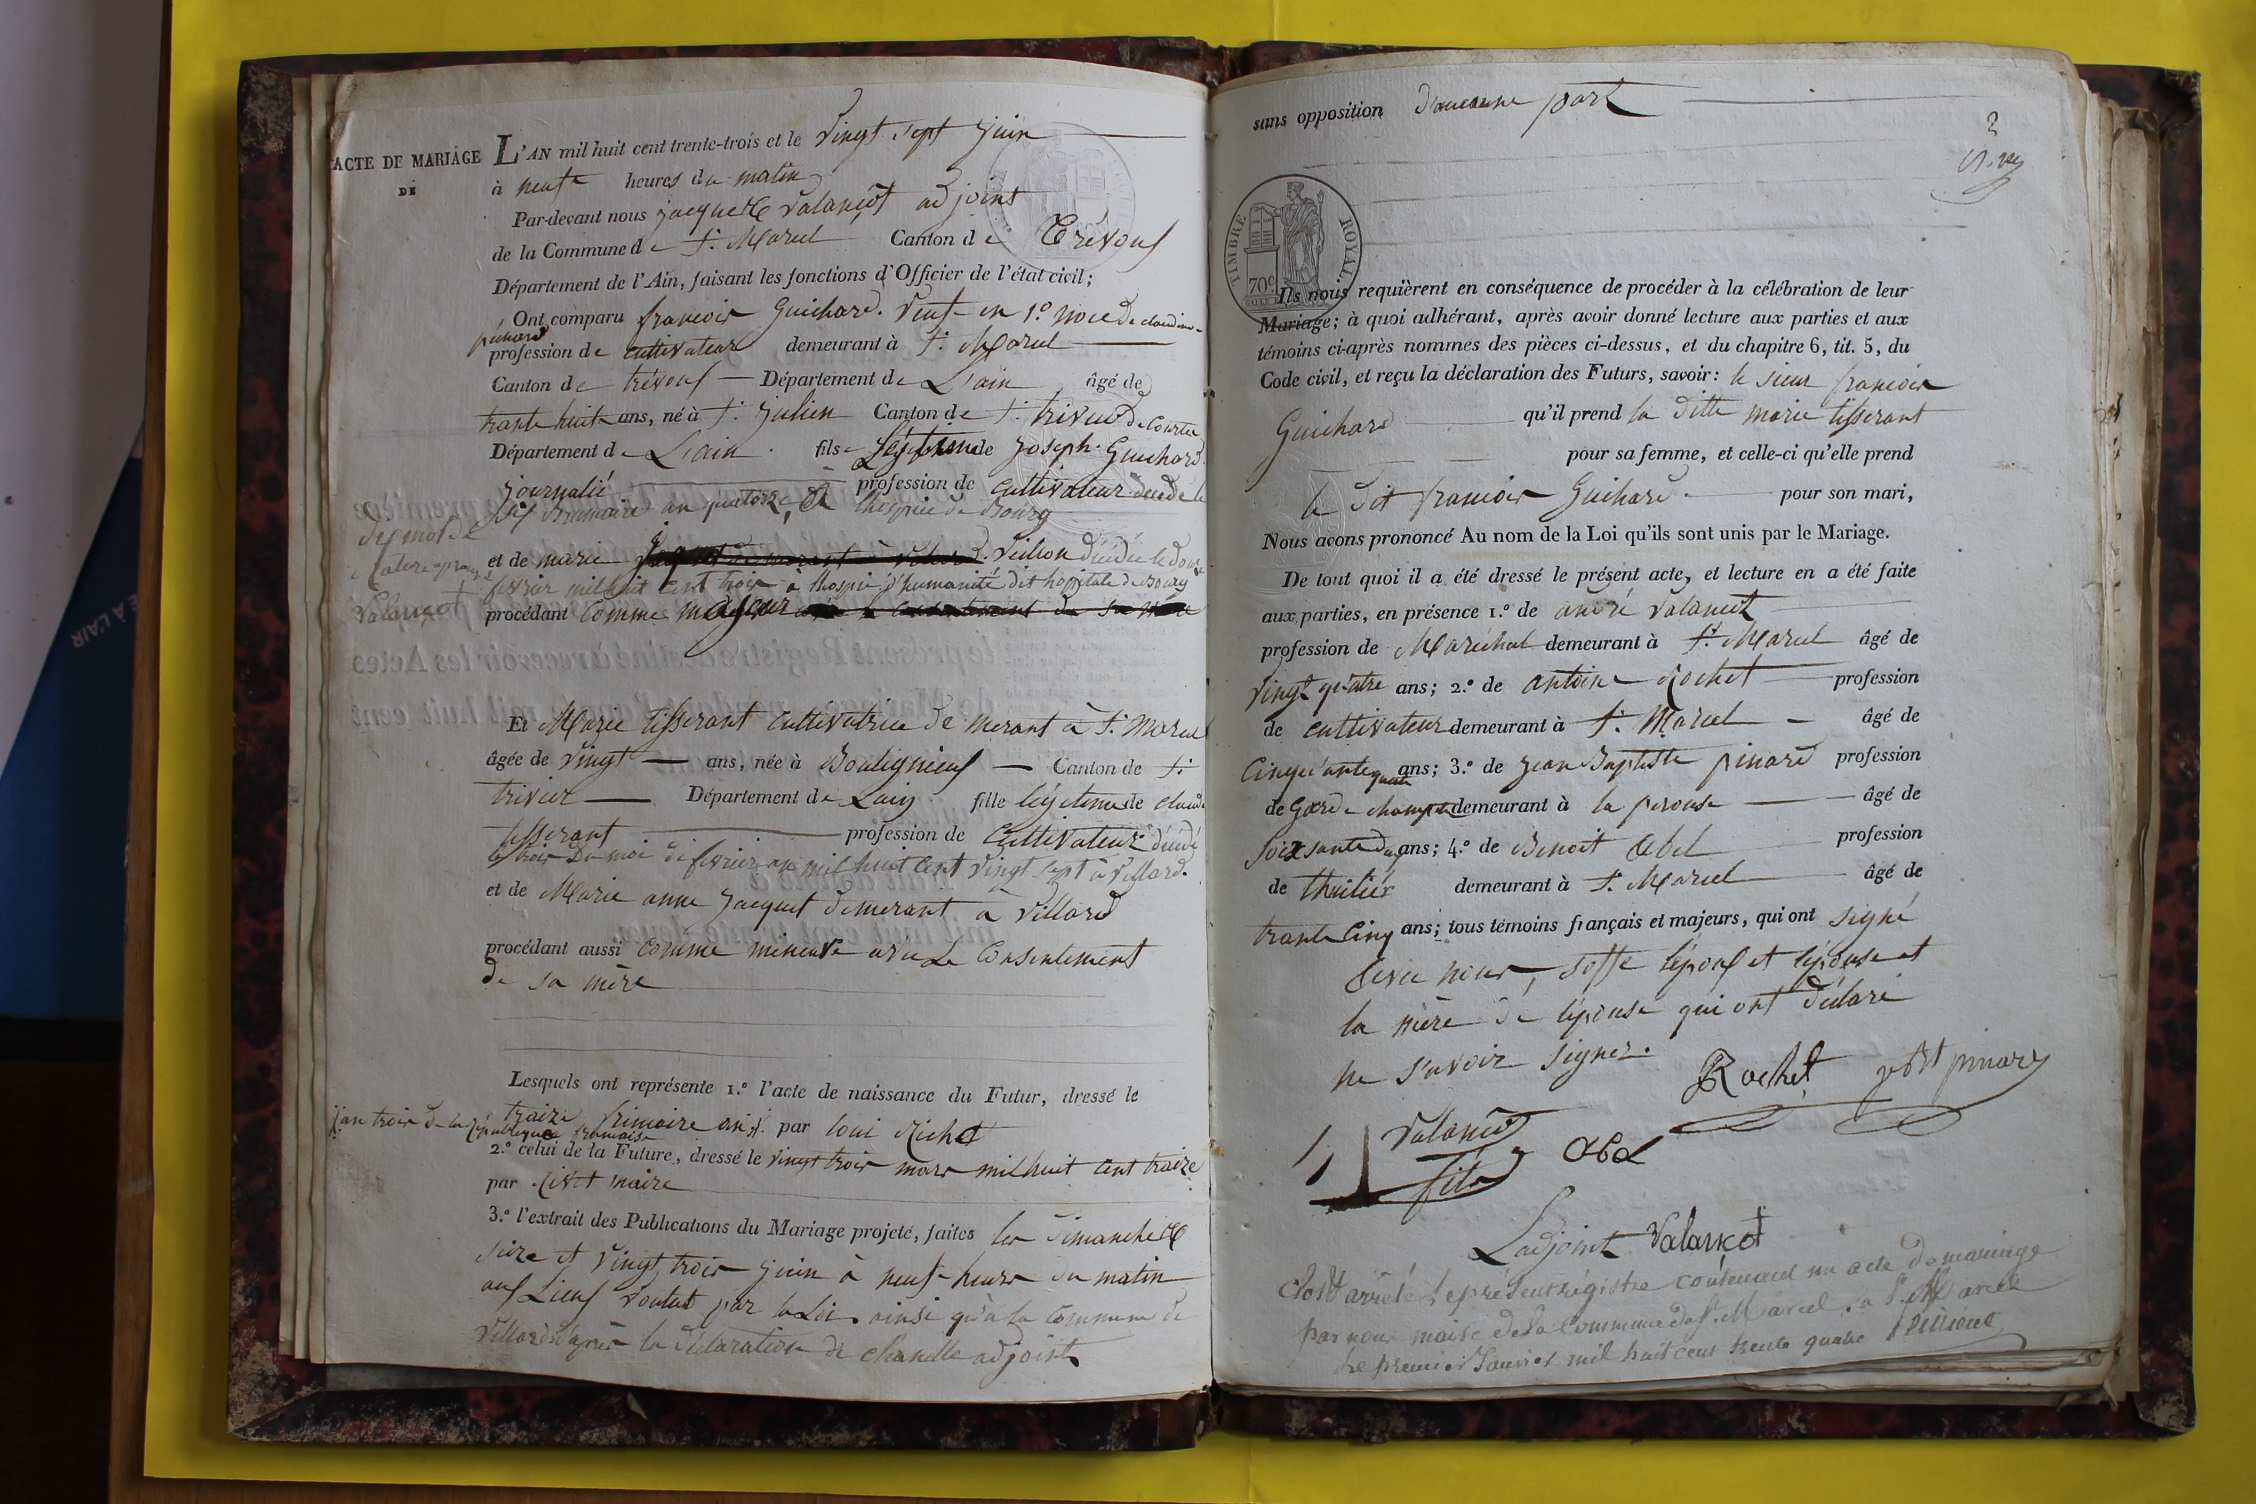 ACTE DE MARIAGE
DE
L'AN mil huit cent trente-trois et le vingt sept juin
à neuf heures du matin
Par-devant nous jacque valançot adjoint
de la Commune de St. Marcel Canton de Trévoux
Département de l'Ain, faisant les fonctions d'Officier de l'état civil;
Ont comparu françois Guichard. veuf en 1.e noce de claudine
pichard
profession de cultivateur demeurant à St. Marcel
Canton de trévoux Département de L'ain âgé de
trante huit ans, né à St. julien Canton de St. trivier de Courte
Département de L'ain. fils Légitime de joseph Guichard
journalié profession de cultivateur décédé le
Brumaire an quatorze, à lhospice de Bourg
et de marie Veillon décédée le douze
fevrier mil huit cent trois à lhospice d'humanité dit hoppitale de Bourg
procédant comme majeur
valançot
Et Marie tisserant cultivatrice de merant à St. Marcel
âgée de vingt ans, née à Bouligneux Canton de St.
trivier Département de Lain fille légitime de claude
tisserant profession de cultivateur décédé
le trois du moi de fevrier an mil huit cent vingt sept à villard.
et de Marie anne jacquet demerant a villard
procédant aussi comme mineure avec Le consentement
de sa mère
Lesquels ont représente 1.o l'acte de naissance du Futur, dressé le
traize frimaire an par loui Richet
l'an trois de la République francaise
2.o celui de la Future, dressé le vingt trois mars mil huit cent traize
par maire
3.o l'extrait des Publications du Mariage projeté, faites les dimanche
seize et vingt trois juin à neuf heure du matin
aux Lieux voulut par la Loi. ainsi qu'a la commune de
villard d'après la déclaration de chanelle adjoint
sans opposition d'aucune part
2
TIMBRE ROYAL
70c
Ils nous requièrent en conséquence de procéder à la célébration de leur
Mariage; à quoi adhérant, après avoir donné lecture aux parties et aux
témoins ci-après nommes des pièces ci-dessus, et du chapitre 6, tit. 5, du
Code civil, et reçu la déclaration des Futurs, savoir: le sieur francois
Guichard qu'il prend la ditte marie tisserant
pour sa femme, et celle-ci qu'elle prend
le dit francois Guichard pour son mari,
Nous avons prononcé Au nom de la Loi qu'ils sont unis par le Mariage.
De tout quoi il a été dressé le présent acte, et lecture en a été faite
aux parties, en présence 1.o de andré valançot
profession de Maréchal demeurant à St. Marcel âgé de
vingt quatre ans; 2.o de antoine Rochet profession
de cultivateur demeurant à St. Marcel âgé de
cinquante quatre ans; 3.o de jean Baptiste pinard profession
de Garde champetre demeurant à la perouse âgé de
soixsante ans; 4.o de Benoit Abel profession
de thuilier demeurant à St. Marcel âgé de
trante cinq ans; tous témoins français et majeurs, qui ont signé
avec nous, soffe lépoux et lépouse et
la mère de lépouse qui ont déclaré
ne savoir signer.
Rochet jbst pinard
valançot
fils
Abel
Ladjoint valançot
Clos et arrêté le présent régistre contenant un acte de mariage
par nous maire de la commune de St. Marcel. a St. Marcel
le premier Janvier mil huit cent trente quatre